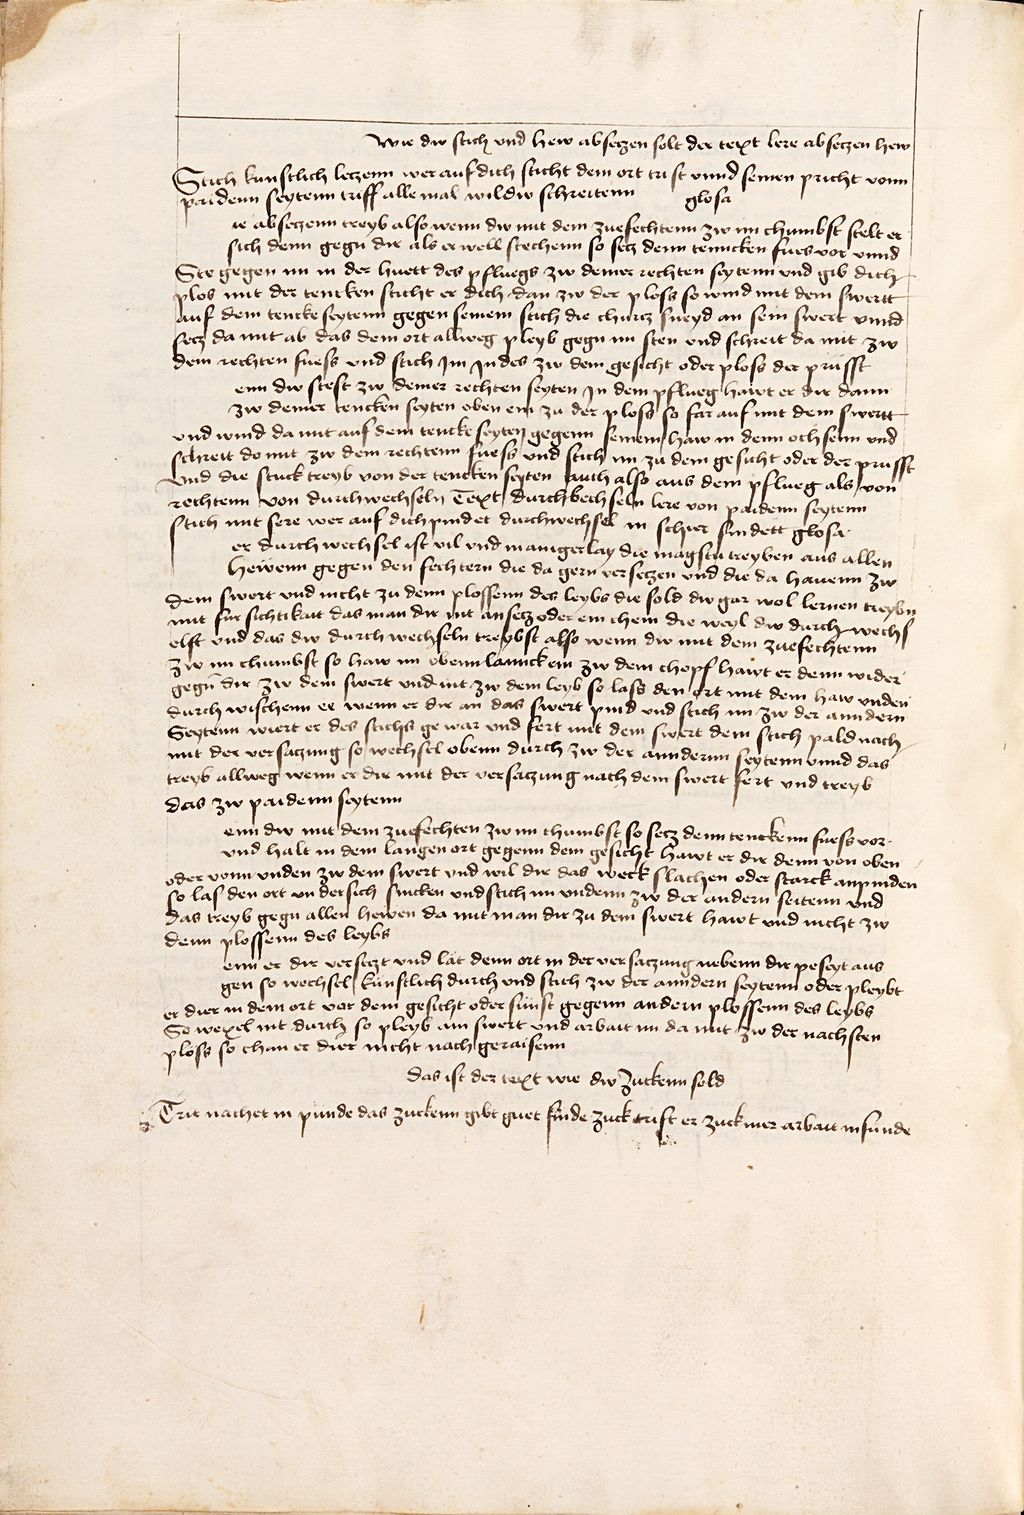 Wie dw stich vnd hew abseczen solt der text lere abseczen hew
Stich kunstlich leczenn wer auf dich sticht dem ort trift vnnd seinen pricht vonn
paidenn seytenn triff alle mal wildw schreitenn glosa
ie abseczenn treyb also wenn dw mit dem zuefechtenn zw im chumbst stelt er
sich denn gegn dir als er well stechenn so secz denn tenncken fues vor vnnd
Ste gegen im in der huett des pfluegs zw deiner rechten seytenn vnd gib dich
plos mit der tencken sticht er dich dan zw der ploss so wind mit dem swertt
auf dem tencke seytenn gegen seinem stich die churcz sneyd an sein swert vnnd
secz da mit ab das dem ort allweg pleyb gegn im sten vnd schreit da mit zw
dem rechten fuess vnd stich Im Indes zw dem gesicht oder ploss der prüsst
enn dw stest zw deiner rechten seyten In dem pflueg hawt er dir dann
zw deiner tencken seyten oben ein zu der ploss so far auf mit dem swertt
vnd wind da mit auf dem tencke seyten gegenn seinem haw in denn ochsenn vnd
schreit do mit zw dem rechtenn fuess vnd stich im zu dem gesicht oder der prusst
vnd die stuck treyb von der tencken seyten auch also aus dem pflueg als von
rechtenn von durchwechseln Text durchbechseln lere von paidenn seytenn
stich mit sere wer auf dich pindet durchwechsel in schier findett glosa
er durchwechsel ist vil vnd manigerlay die magstu treyben aus allen
hewenn gegen den fechtern die da gern verseczen vnd die da hauenn zw
dem swert vnd nicht zu denn plossenn des leybs die sold dw gar wol lernen treybn
mit fürsichtikait das man dir nit ansecz oder ein chem die weyl dw durch wechs
elst vnd das dw durchwechseln treybst also wenn dw mit dem zuefechtenn
zw im chumbst so haw im obenn lannck ein zw dem chopf hawt er denn wider
gegn dir zw dem swert vnd nit zw dem leyb so lass den ort mit dem haw vnden
durch wischenn ee wenn er dir an das swert pind vnd stich im zw der anndern
Seytenn wiert er des stichs gewar vnd fert mit dem swert dem stich pald nach
mit der versaczung so wechsel obenn durch zw der anndernn seytenn vnnd das
treyb allweg wenn er dir mit der versaczung nach dem swert fert vnd treyb
das zw paidenn seytenn
enn dw mit dem zuefechten zw im chumbst so secz denn tenckenn fuess vor
vnd halt in dem langen ort gegenn dem gesicht hawt er dir denn von oben
oder vonn vnden zw dem swert vnd wil dir das weck slachen oder starck anpinden
so las den ort vndersich sincken vnd stich im vndenn zw der andern seitenn vnd
das treyb gegn allen hewen da mit man dir zu dem swert hawt vnd nicht zw
denn plossenn des leybs
enn er dir verseczt vnd lat denn ort in der versaczung nebenn dir peseyt aus
gen so wechsel künstlich durch vnd stich zw der anndern seytenn oder pleybt
er dier in dem ort vor dem gesicht oder sünst gegenn andern plossenn des leybs
So wexel nit durch so pleyb am swert vnd arbait im da mit zw der nachsten
ploss so chan er dier nicht nach geraisenn
das ist der text wie dw zuckenn sold
Trit nachet in pünde das zuckenn gibt guet fünde zuck trift er zuck mer arbait in fünde